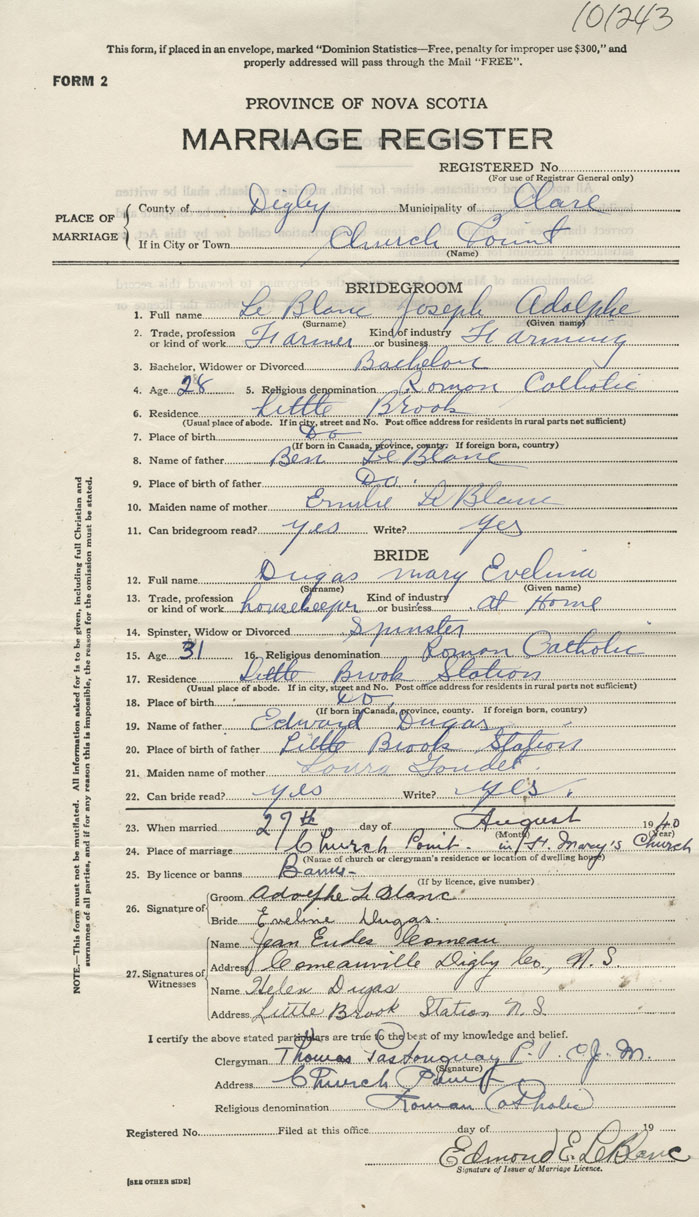 101243
This form, if placed in an envelope, marked "Dominion Statistics—Free, penalty for improper use $300," and
properly addressed will pass through the Mail "FREE".
FORM 2
PROVINCE OF NOVA SCOTIA
MARRIAGE REGISTER
REGISTERED No.
(For use of Registrar General only)
PLACE OF MARRIAGE
County of Digby Municipality of Clare
If in City or Town Church Point
(Name)
BRIDEGROOM
1. Full name Le Blanc Joseph Adolphe
(Surname) (Given name)
2. Trade, profession or kind of work Farmer Kind of industry or business Farming
3. Bachelor, Widower or Divorced Bachelor
4. Age 28 5. Religious denomination Roman Catholic
6. Residence Little Brook
(Usual place of abode. If in city, street and No. Post office address for residents in rural parts not sufficient)
7. Place of birth Do
(If born in Canada, province, county. If foreign born, country)
8. Name of father Ben Le Blanc
9. Place of birth of father Do.
10. Maiden name of mother Emilie Le Blanc
11. Can bridegroom read? yes Write? yes
BRIDE
12. Full name Dugas Mary Evelina
(Surname) (Given name)
13. Trade, profession or kind of work housekeeper Kind of industry or business at Home
14. Spinster, Widow or Divorced Spinster
15. Age 31 16. Religious denomination Roman Catholic
17. Residence Little Brook Station
(Usual place of abode. If in city, street and No. Post office address for residents in rural parts not sufficient)
18. Place of birth Do.
(If born in Canada, province, county. If foreign born, country)
19. Name of father Edward Dugas
20. Place of birth of father Little Brook Station
21. Maiden name of mother Laura
22. Can bride read? yes Write? yes.
23. When married 27th day of August 1940
(Month) (Year)
24. Place of marriage Church Point - in St. Mary's Church
(Name of church or clergyman's residence or location of dwelling house)
25. By licence or banns Banns-
(If by licence, give number)
26. Signature of
Groom Adolphe LeBlanc
Bride Eveline Dugas.
27. Signatures of Witnesses
Name Jean Eudes Comeau
Address Comeauville Digby Co., N.S.
Name Helen Dugas
Address Little Brook Station N.S
I certify the above stated particulars are true to the best of my knowledge and belief.
Clergyman Thomas P. C.J.M.
(Signature)
Address Church Point
Religious denomination Roman Catholic
Registered No. Filed at this office day of 19
Edmond E. LeBlanc
Signature of Issuer of Marriage Licence.
[SEE OTHER SIDE]
NOTE.—This form must not be mutilated. All information asked for is to be given, including full Christian and
surnames of all parties, and if for any reason this is impossible, the reason for the omission must be stated.